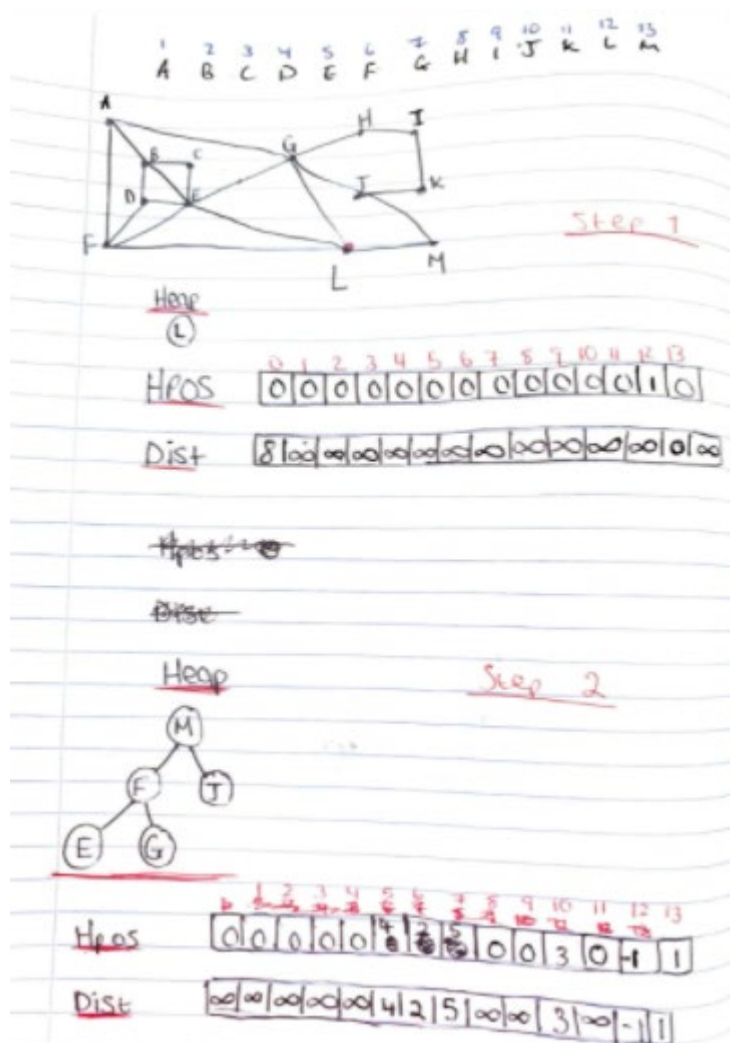 1 2 3 4 5 6 7 8 9 10 11 12 13
A B C D E F G H I J K L M
A
H I
G
B C
J K
D E
F
L M
Step 1
Heap
L
0 1 2 3 4 5 6 7 8 9 10 11 12 13
HPOS 0 0 0 0 0 0 0 0 0 0 0 0 1 0
Dist 8 ∞ ∞ ∞ ∞ ∞ ∞ ∞ ∞ ∞ ∞ 0 ∞
Hpos
Dist
Heap
Step 2
M
F J
E G
1 2 3 4 5 6 7 8 9 10 11 12 13
Hpos 0 0 0 0 0 4 2 5 0 0 3 0 -1 1
Dist ∞ ∞ ∞ ∞ ∞ 4 2 5 ∞ ∞ 3 ∞ -1 1